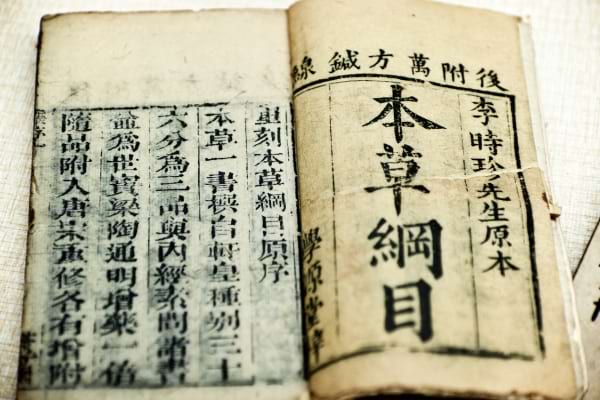 後附萬方鍼線
李時珍先生原本
本草綱目
學原堂梓
重刻本草綱目原序
本草一書稱自軒皇種別三十
六分為三品與內經素問諸書
並為世寶梁陶通明增藥一倍
隨品附入唐宋重修各有增附